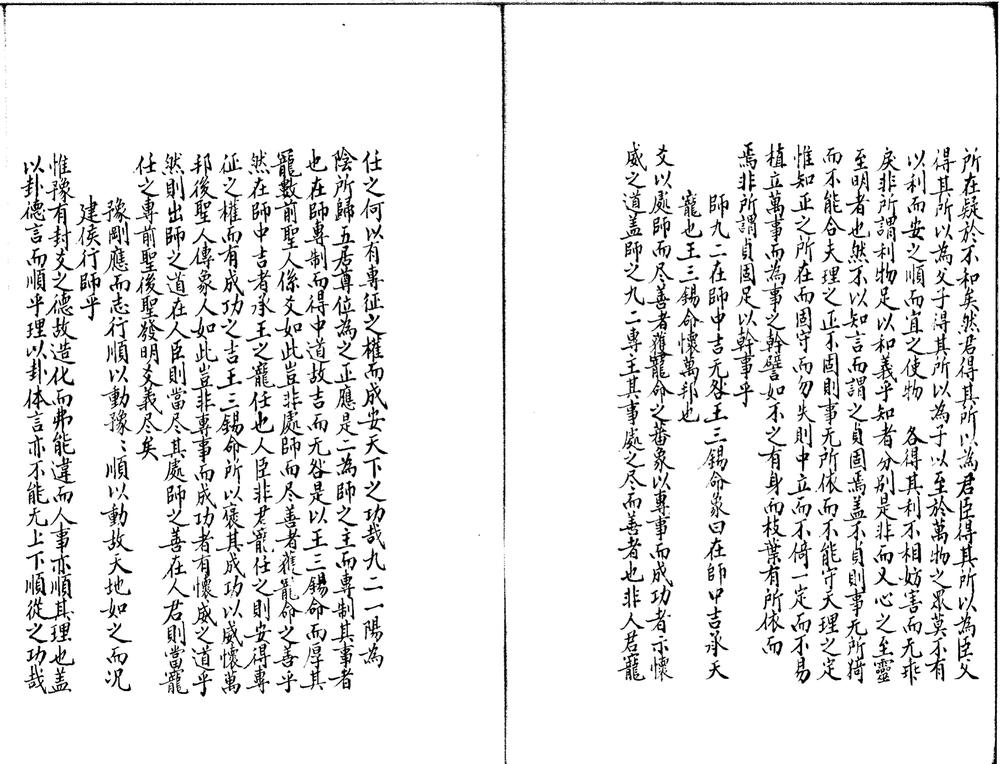 所在疑於不和矣然君得其所以為君臣得其所以為臣父
得其所以為父子得其所以為子以至於萬物之眾莫不有
以利而安之順而宜之使物　各得其利不相妨害而无乖
戾非所謂利物足以和義乎知者分別是非而又心之至靈
至明者也然不以知言而謂之貞固焉盖不貞則事无所猗
而不能合夫理之正不固則事无所依而不能守天理之定
惟知正之所在而固守而勿失則中立而不倚一定而不易
植立萬事而為事之幹譬如木之有身而枝葉有所依而
焉非所謂貞固足以幹事乎
師九二在師中吉无咎王三錫命象曰在師中吉承天
寵也王三錫命懷萬邦也
爻以處師而尽善者獲寵命之蕃象以專事而成功者示懷
威之道盖師之九二專主其事處之尽而善者也非人君寵
任之何以有專征之權而成安天下之功哉九二一陽為
陰所歸五居尊位為之正應是二為師之主而專制其事者
也在師專制而得中道故吉而无咎是以王三錫命而厚其
寵數前聖人係爻如此豈非處師而尽善者獲寵命之善乎
然在師中吉者承王之寵任也人臣非君寵任之則安得專
征之權而有成功之吉王三錫命所以褒其成功以威懷萬
邦後聖人傳象人如此豈非專事而成功者有懷威之道乎
然則出師之道在人臣則當尽其處師之善在人君則當寵
任之專前聖後聖發明爻義尽矣
豫剛應而志行順以動豫〻順以動故天地如之而況
建侯行師乎
惟豫有封爻之德故造化而弗能違而人事亦順其理也盖
以卦德言而順乎理以卦体言亦不能无上下順從之功哉